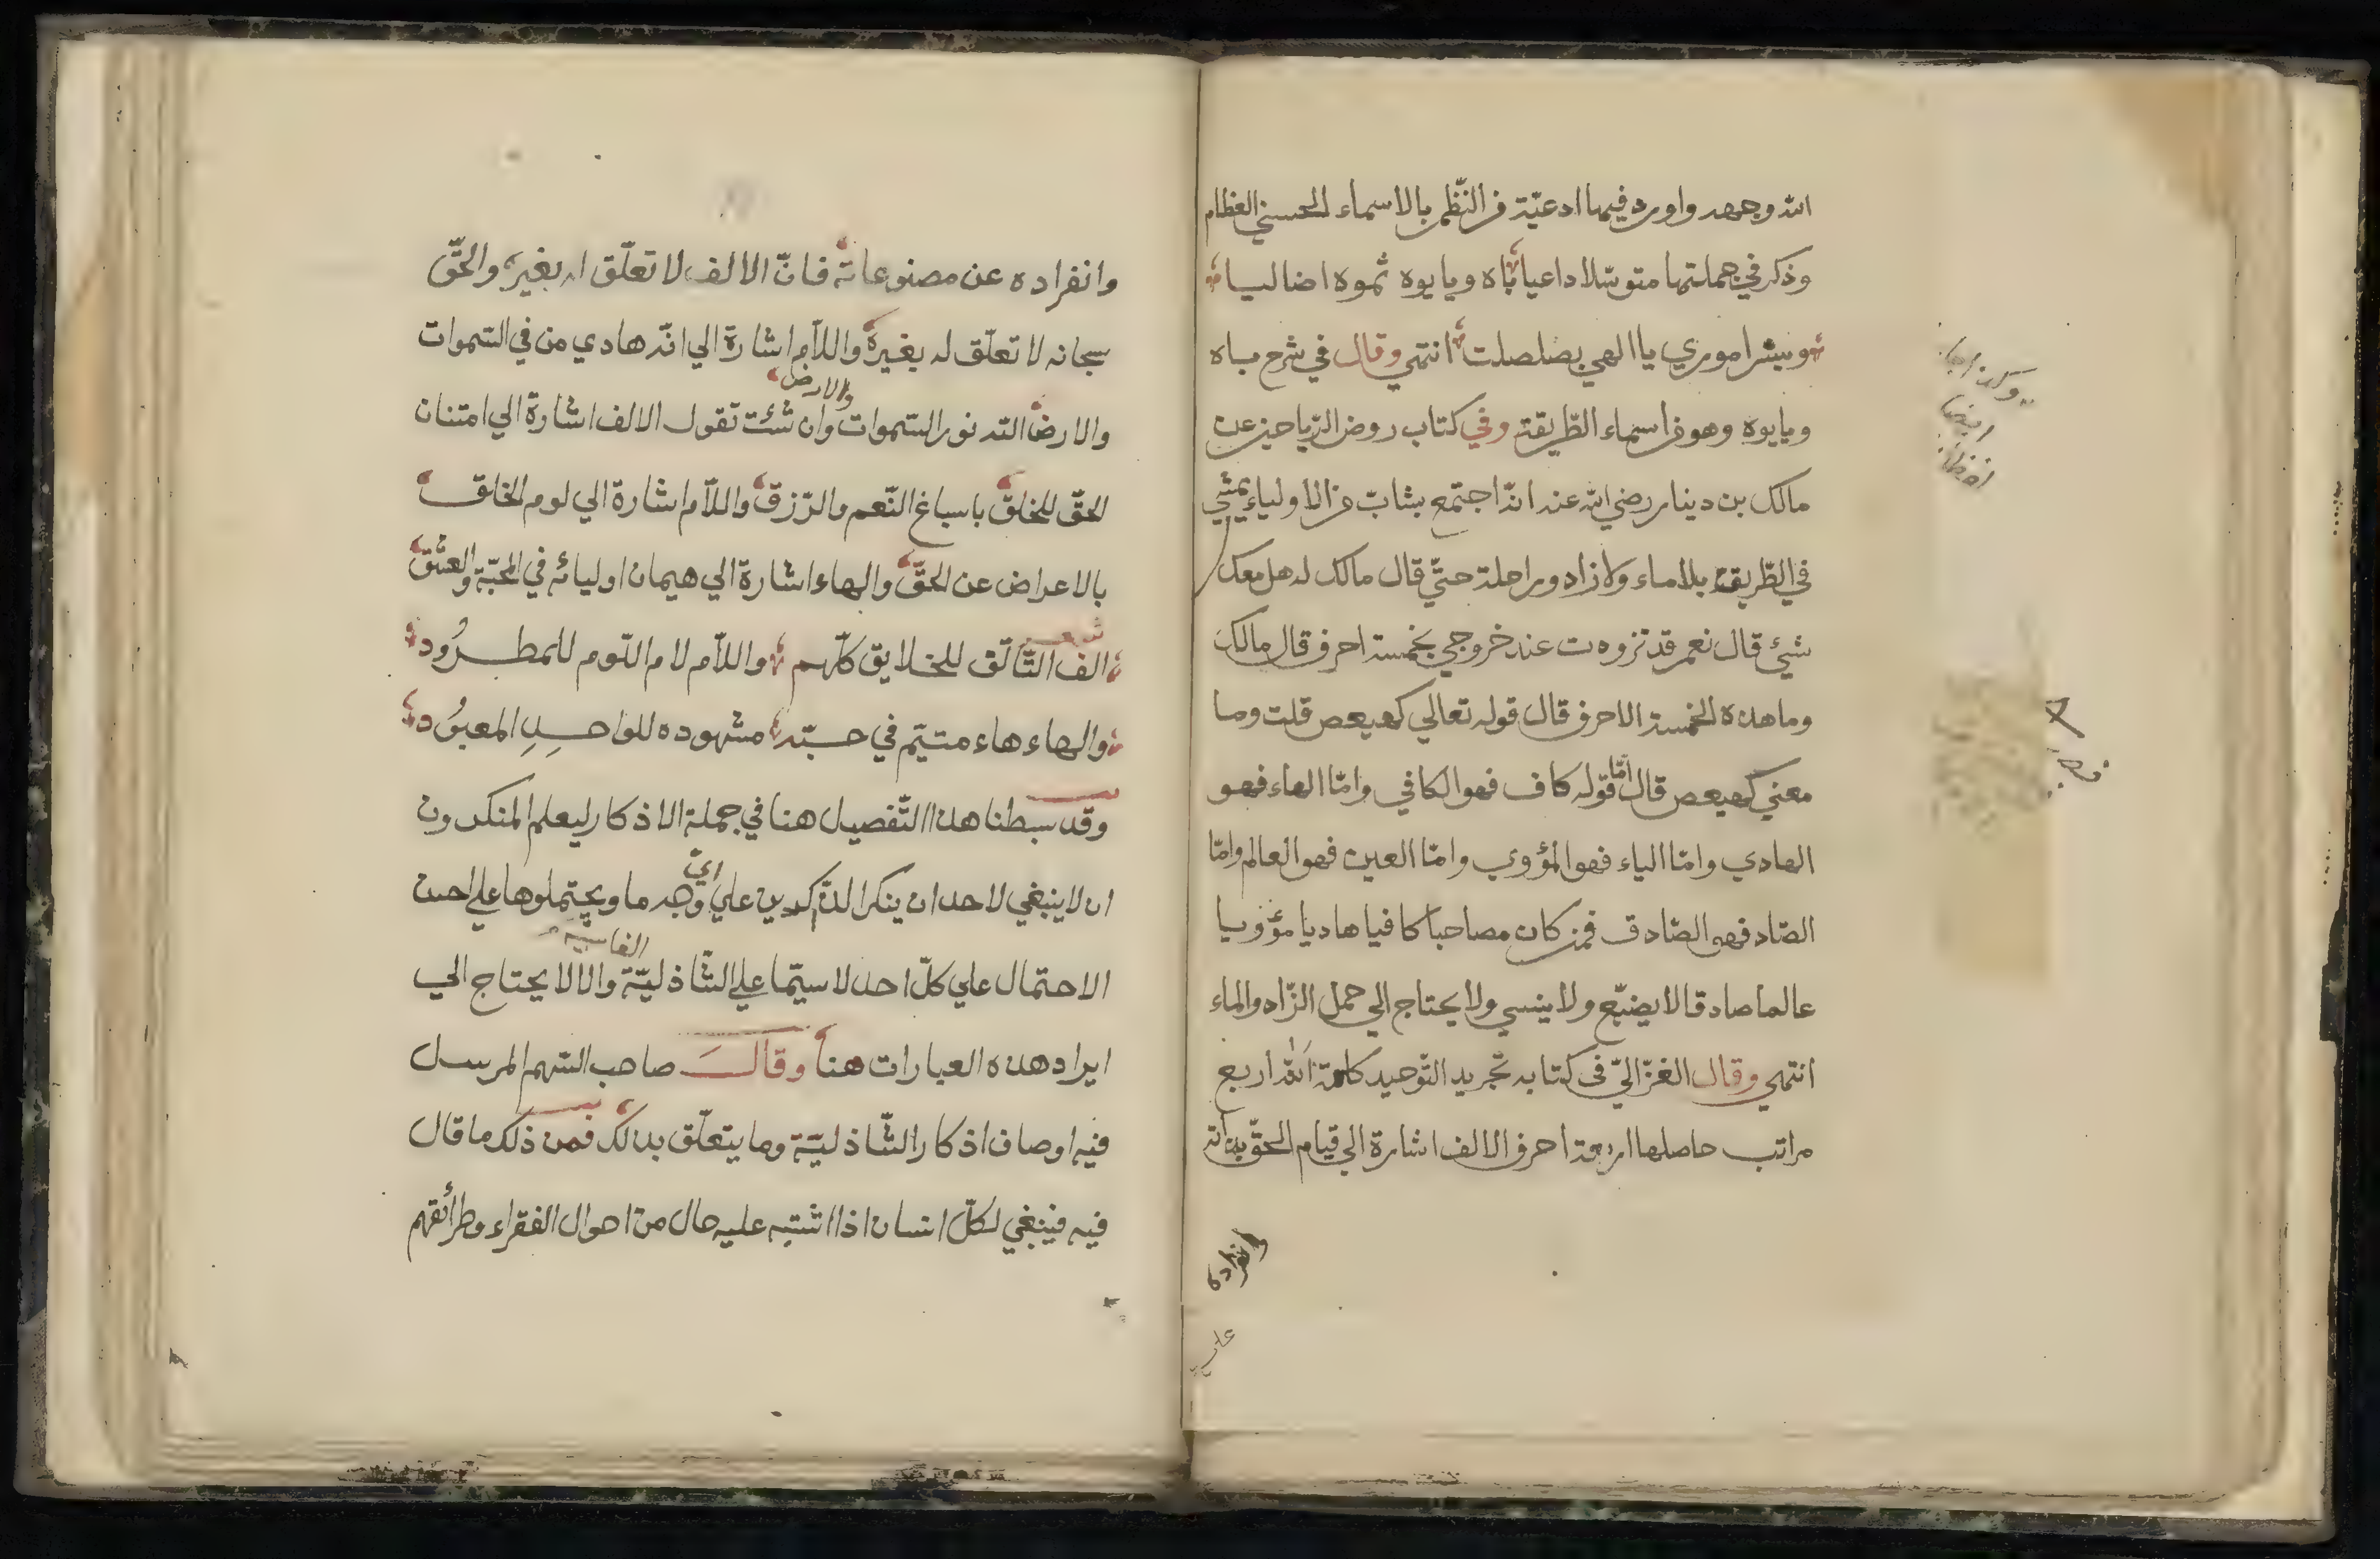 الله وجهه واورد فيها ادعيّة من النّظم بالاسماء الحسني العظام
وذكر في جملتها متوسّلا داعيا باه ويا يوه ثموه اضاليا
ويسّر اموري يا الهي بصلصلت انتهي وقال في شرح باه
ويا يوه وهو من اسماء الطّريقة وفي كتاب روض الرّياحين عن
مالك بن دينار رضي الله عنه انّه اجتمع بشابّ من الاولياء يمشي
في الطّريقة بلا ماء ولا زاد وراحلة حتّي قال مالك له هل معك
شئ قال نعم قد تزودت عند خروجي بخمسة احرف قال مالك
وما هذه الخمسة الاحرف قال قوله تعالي كهيعص قلت وما
معني كهيعص قال امّا قوله كاف فهو الكافي وامّا الهاء فهو
الهادي وامّا الياء فهو المؤوي وامّا العين فهو العالم وامّا
الصّاد فهو الصّادق فمن كان مصاحبا كافيا هاديا مؤويا
عالما صادقا لا يضيّع ولا ينسي ولا يحتاج الي حمل الزّاد والماء
انتهي وقال الغزّاليّ في كتابه تجريد التّوحيد كلمة الله اربع
مراتب حاصلها اربعة احرف الالف اشارة الي قيام الحقّ بذاته
وانفراده
وانفراده عن مصنوعاته فانّ الالف لا تعلّق له بغيره والحقّ
سبحانه لا تعلّق له بغيره واللاّم اشارة الي انّه هادي من في السّموات
والارض
والارض الله نور السّموات وان شئت تقول الالف اشارة الي امتنان
الحقّ للخلق باسباغ النّعم والرّزق واللاّم اشارة الي لوم الخلق
بالاعراض عن الحقّ والهاء اشارة الي هيمان اوليائه في المحبّة والعشق
شعر
الف التّالّف للخلايق كلّهم واللاّم لام اللّوم للمطرُود
والهاء هاء متيّم في حبّه مشهوده للواحدِ المعبوُد
وقد بسطنا هذا التّفصيل هنا في جملة الاذكار ليعلم المنكرون
ان لا ينبغي لاحد ان ينكر الذّاكرين علي ايّ وجه ما ويحتملوها علي احسن
الفاسيه
الاحتمال علي كلّ احد لا سيّما علي الشّاذليّة والاّ لا يحتاج الي
ايراد هذه العبارات هنا وقال صاحب السّهم المرسل
فيه اوصاف اذكار الشّاذليّة وما يتعلّق بذلك فمن ذلك ما قال
فيه فينبغي لكلّ انسان اذا اشتبه عليه حال من احوال الفقراء وطرائقهم